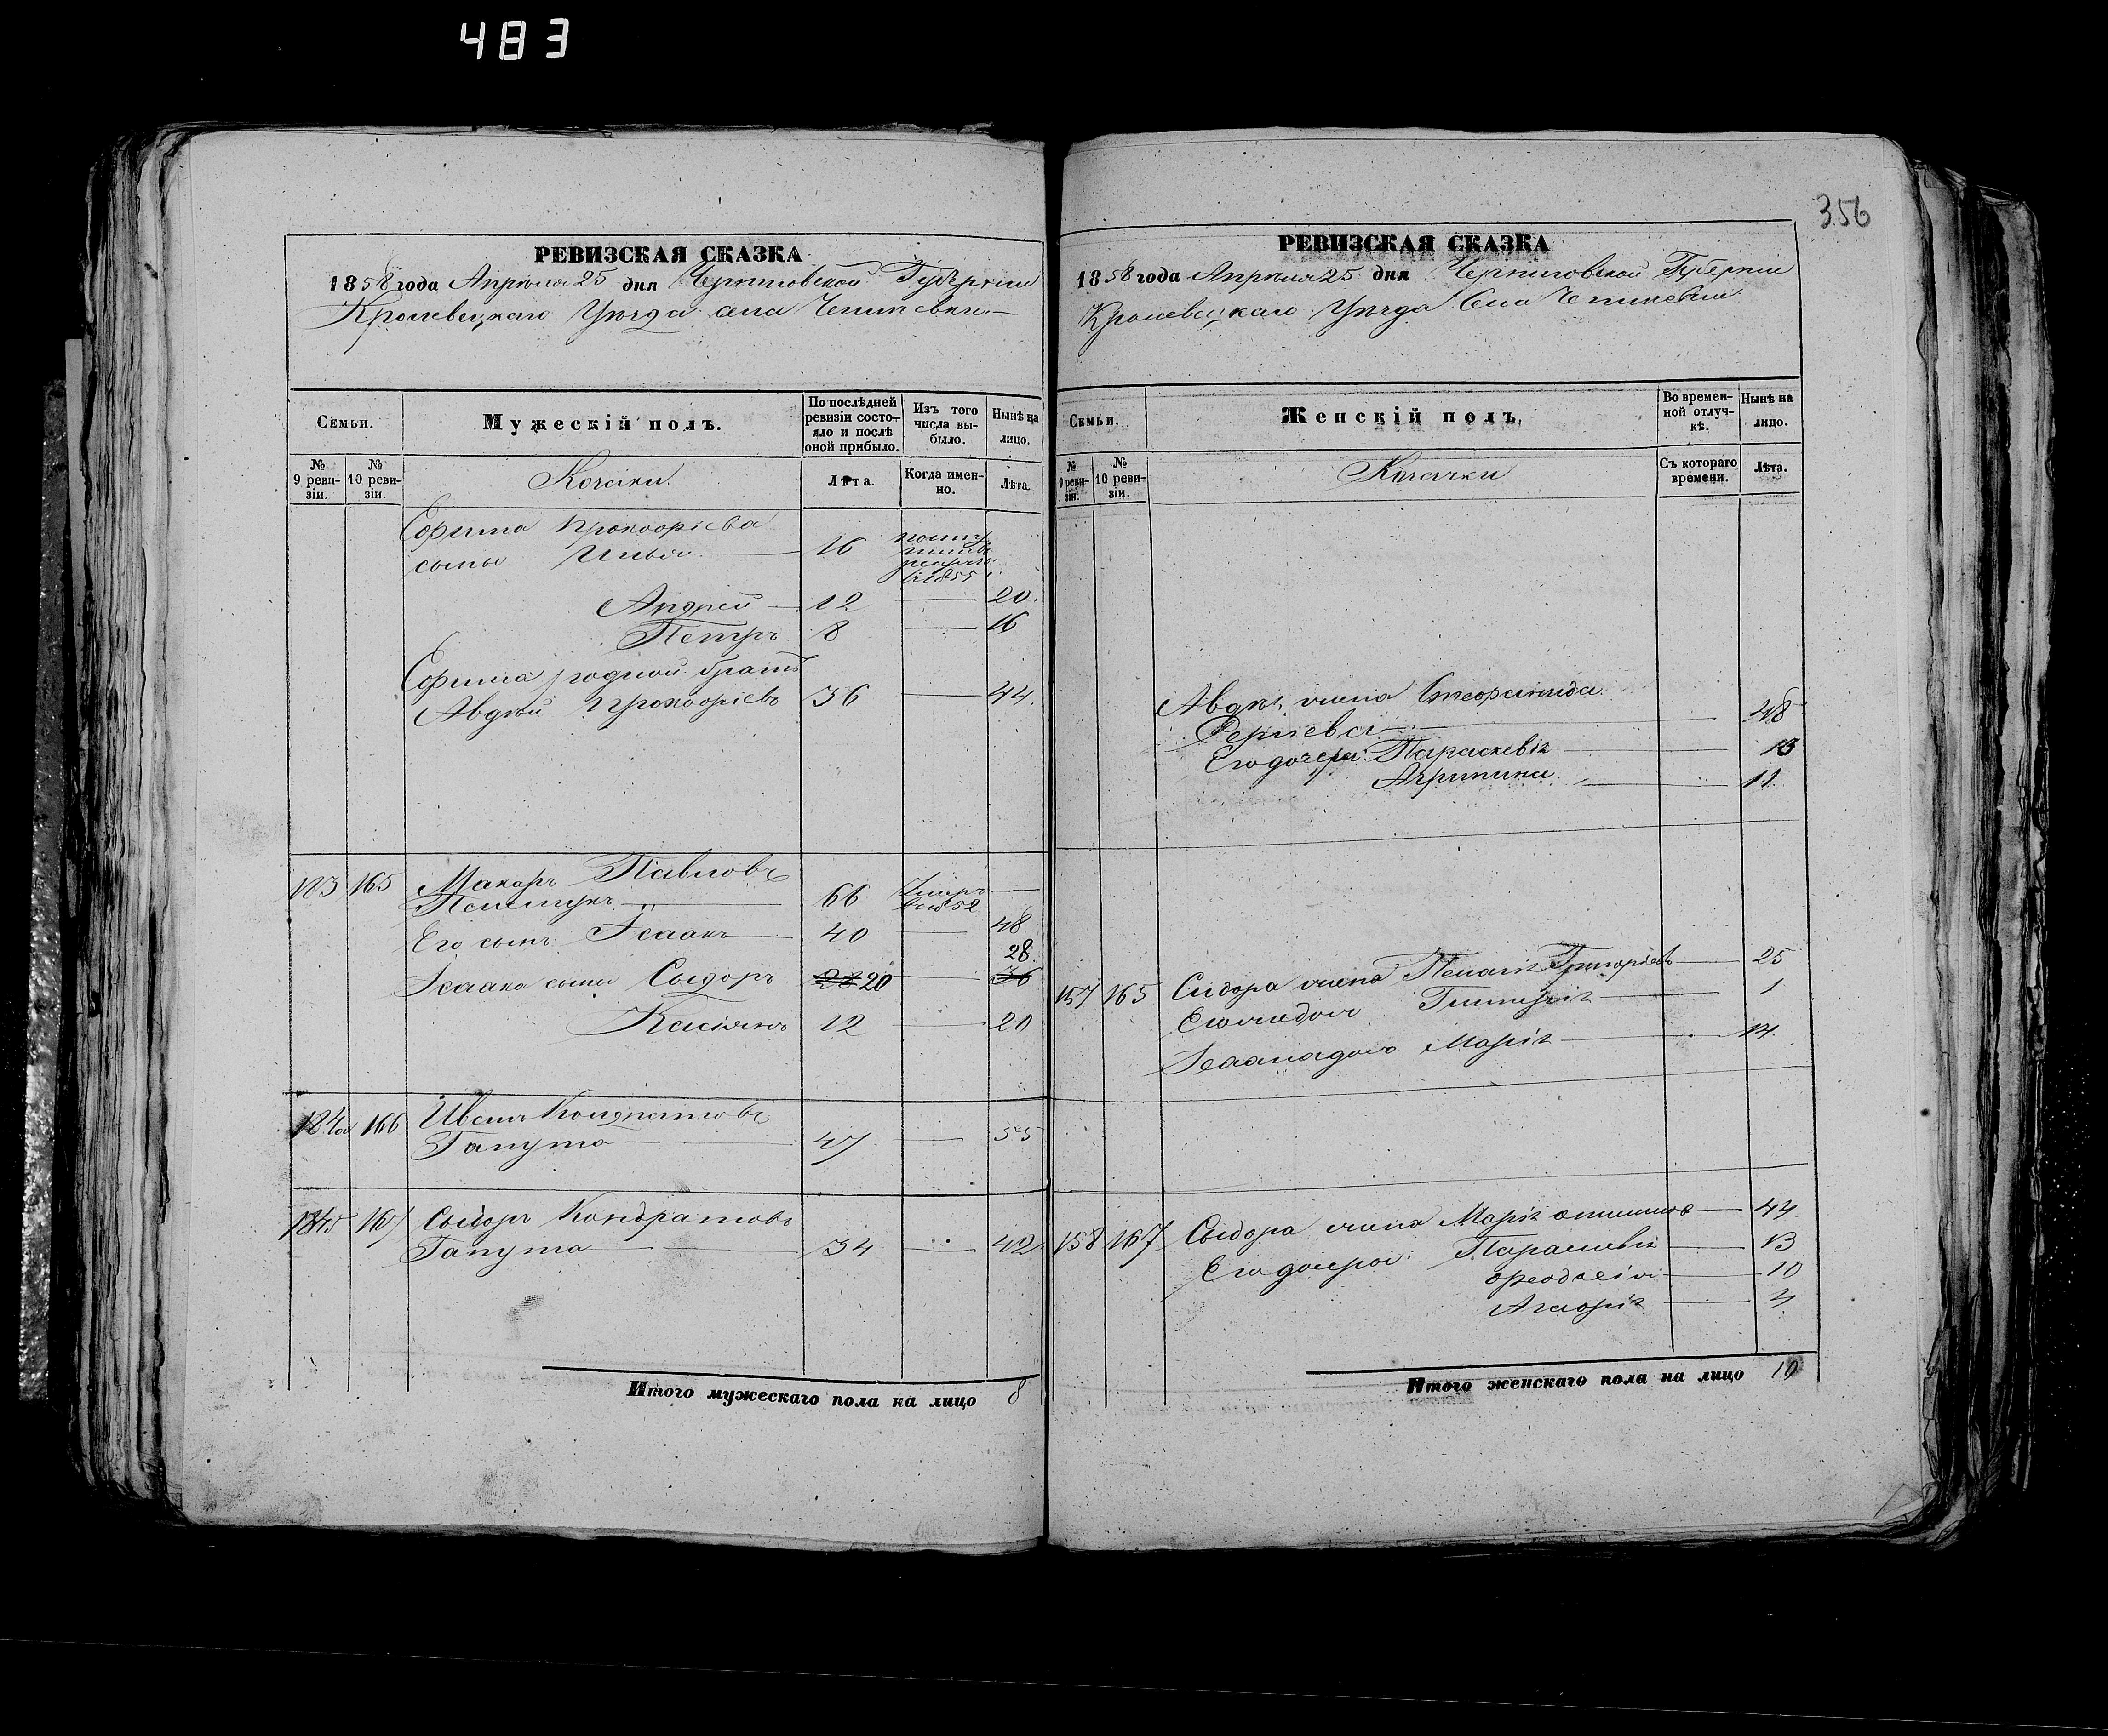 483
356
РЕВИЗСКАЯ СКАЗКА
1858 года Апрѣля 25 дня Черниговской Губерніи
Кролевецкаго Уѣзда села
Семьи.
Мужескій полъ.
По послѣдней ревизіи состояло и послѣ оной прибыло.
Изъ того числа выбыло.
Нынѣ на лицо.
№ 9 ревизіи.
№ 10 ревизіи.
Козаки
Лѣта.
Когда именно.
Лѣта.
Ефима Прокофіева
сыны Илья 16 1855
Андрей 12 20
Петръ 8 16
Ефима родной братъ
Авдѣй Прокофіевъ 36 44
183 165 Макаръ Павловъ
66 Умеръ 52
Его сынъ Ісаакъ 40 48
28
Ісаака сыны Сыдоръ 20 36
Касіянъ 12 20
184 166 Иванъ Кондратовъ
Гапута 47 55
1845 167 Сыдоръ Кондратовъ
Гапута 34 42
Итого мужескаго пола на лицо 8
РЕВИЗСКАЯ СКАЗКА
1858 года Апрѣля 25 дня Черниговской Губерніи
Кролевецкаго Уѣзда Села
Семьи.
Женскій полъ.
Во временной отлучкѣ.
Нынѣ на лицо.
№ 9 ревизіи.
№ 10 ревизіи.
Козачки
Съ котораго времени.
Лѣта.
Авдѣя жена Стефанида
48
Его дочери Параскевія 13
Агрипина 11
Сидора жена Пелагія Григорьева 25
157 165 1
Ісаака дочь Марія 14
Сыдора жена Марія 44
158 167 Его дочери Параскевія 13
Феодосія 10
4
Итого женскаго пола на лицо 10